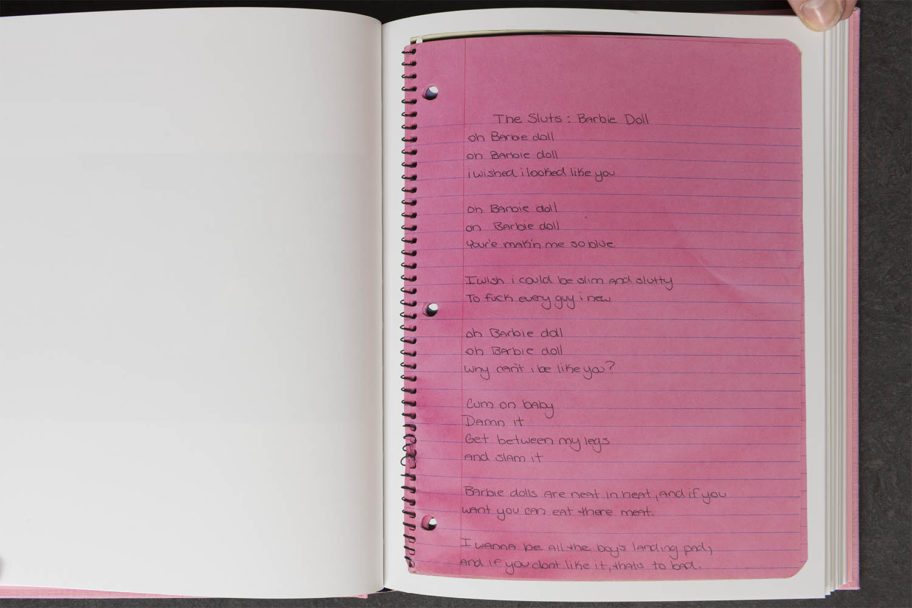 The Sluts: Barbie Doll
oh Barbie doll
oh Barbie doll
i wished i looked like you
oh Barbie doll
oh Barbie doll
Your'e makin me so blue
I wish i could be slim and slutty
To fuck every guy i new
oh Barbie doll
oh Barbie doll
Why can't i be like you?
Cum on baby
Damn it
Get between my legs
And slam it
Barbie dolls are neat in heat, and if you
want you can eat there meat.
I wanna be all the boy's landing pad,
And if you dont like it, thats to bad.